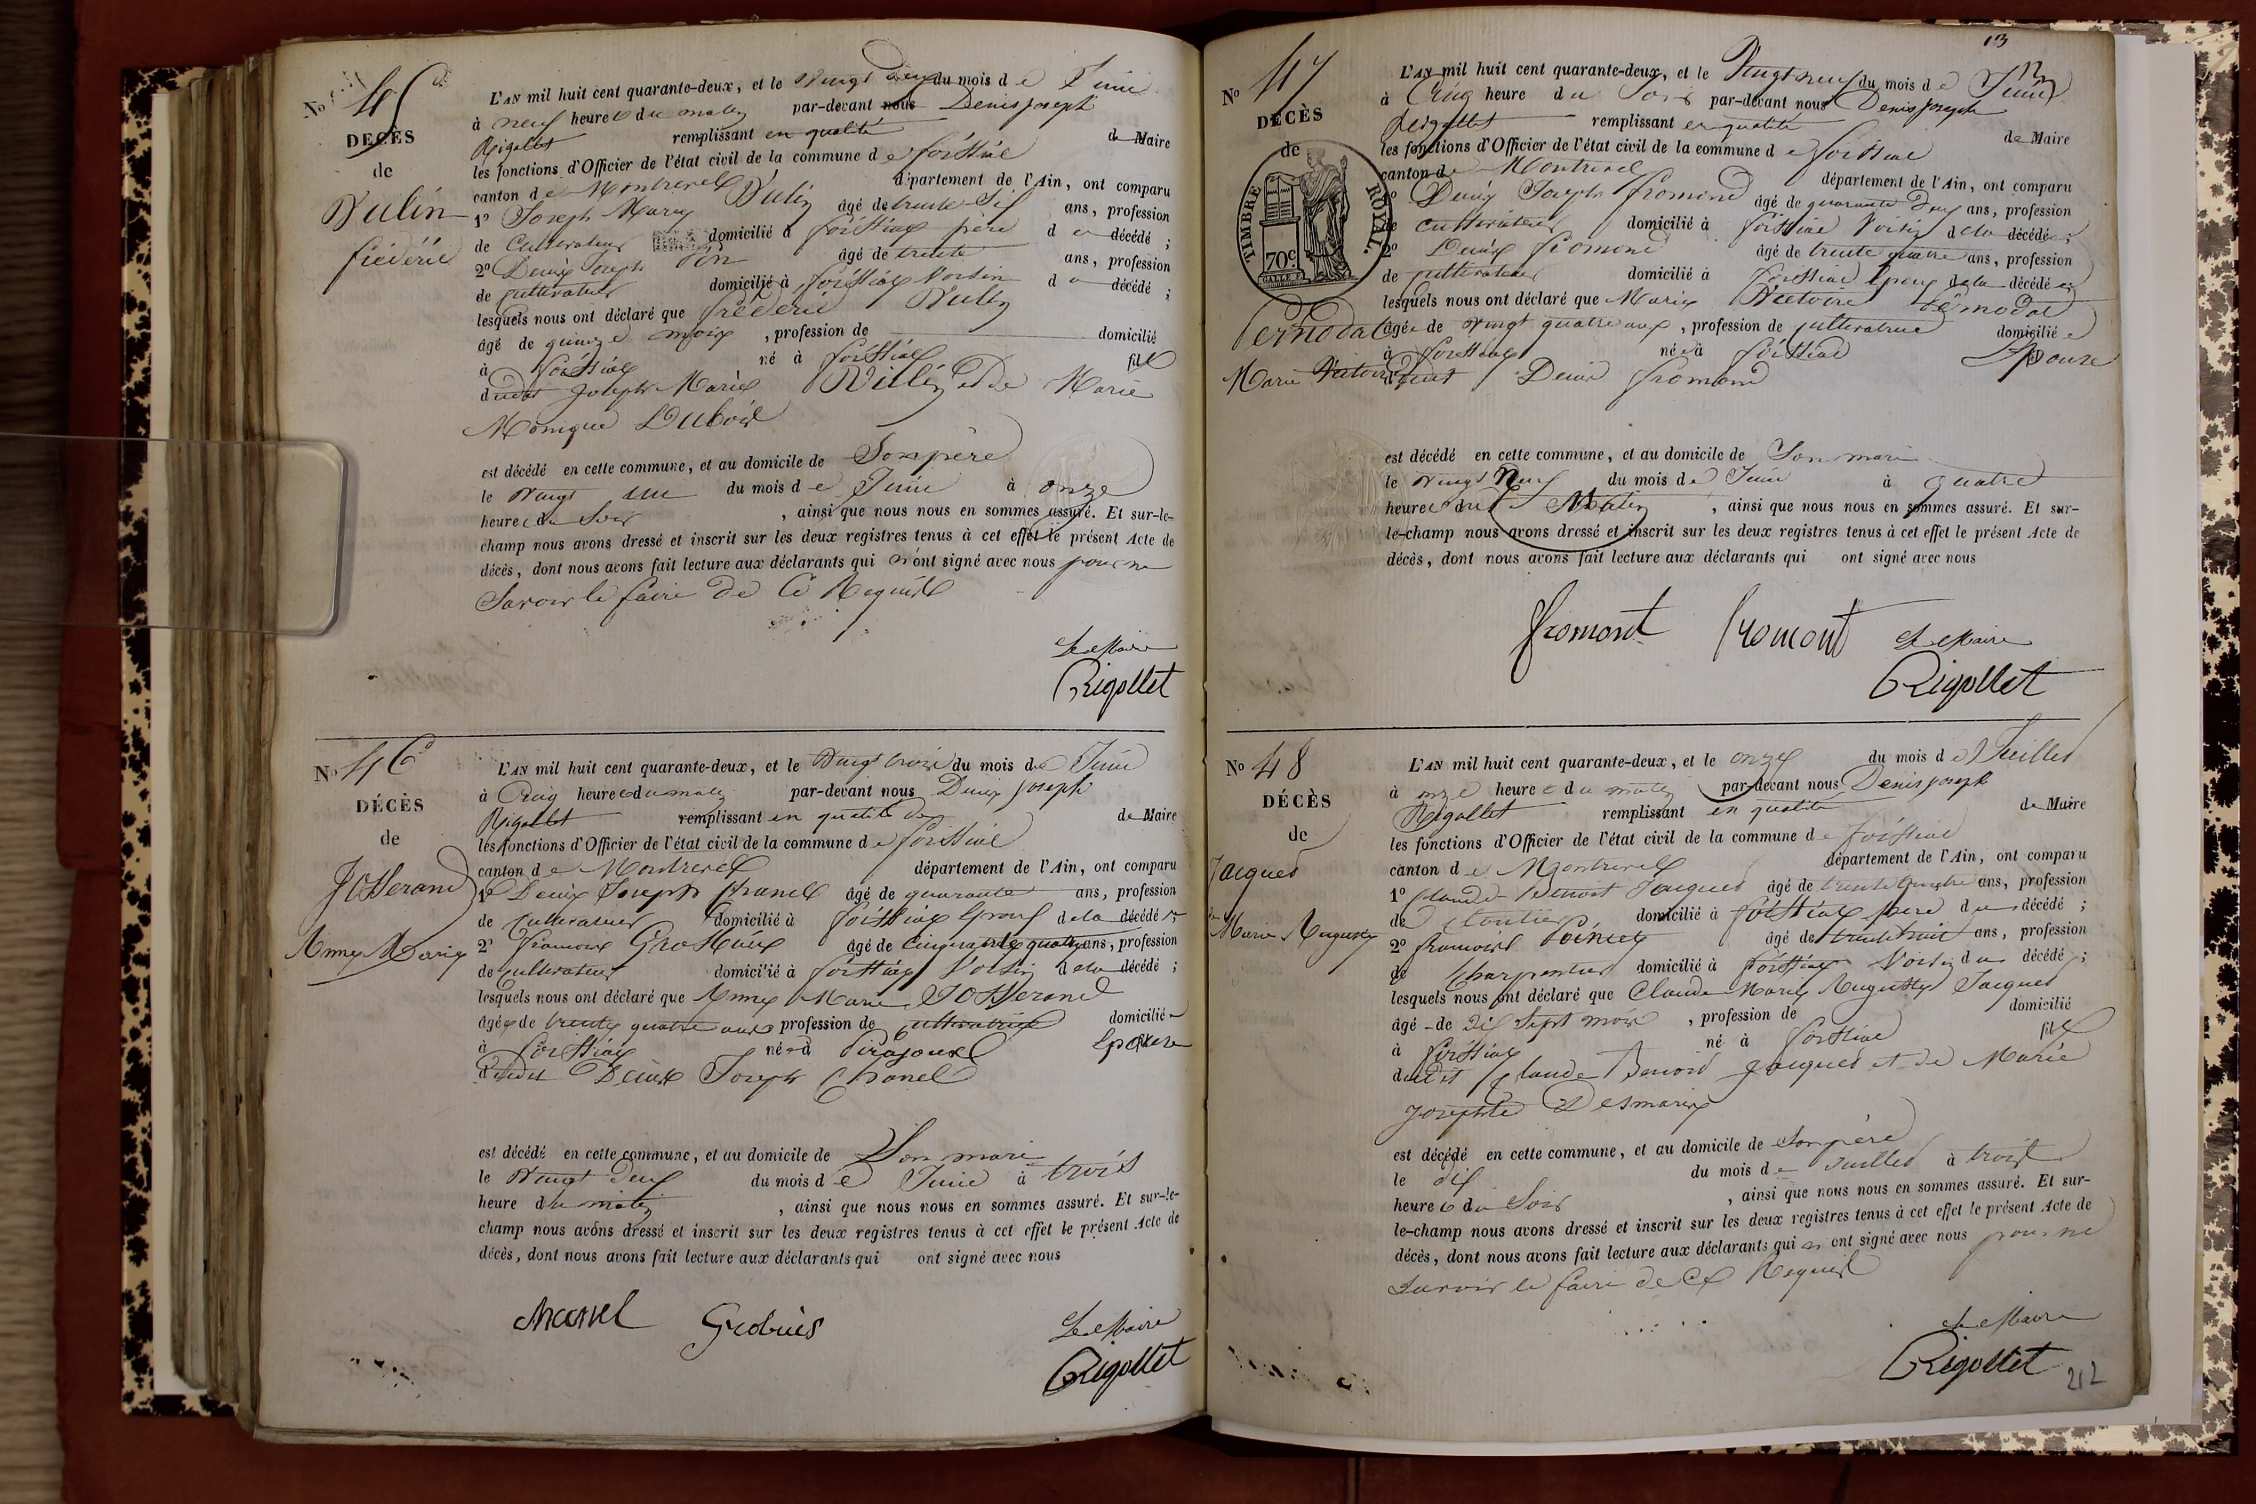 No 45
DÉCÈS
de
Vulin
frédéric
L'AN mil huit cent quarante-deux, et le vingt deux du mois de Juin
à neuf heures du matin par-devant nous Denis joseph
Rigollet remplissant en qualité de Maire
les fonctions d'Officier de l'état civil de la commune de foissiat
canton de Montrevel département de l'Ain, ont comparu
1o Joseph Marie Vulin âgé de trente six ans, profession
de Cultivateur domicilié à foissiat père du décédé ;
2o Denis Joseph âgé de trente ans, profession
de cultivateur domicilié à foissiat Voisin du décédé ;
lesquels nous ont déclaré que frédéric Vulin
âgé de quinze mois , profession de domicilié
à foissiat né à foissiat fils
dudit joseph Marie Vulin et de Marie
Monique Dubois
est décédé en cette commune, et au domicile de Son père
le vingt un du mois de Juin à onze
heures du Soir , ainsi que nous nous en sommes assuré. Et sur-le-
champ nous avons dressé et inscrit sur les deux registres tenus à cet effet le présent Acte de
décès, dont nous avons fait lecture aux déclarants qui n'ont signé avec nous pour ne
Savoir le faire de Ce Requis
Le Maire
Rigollet
No 46
DÉCÈS
de
Josserand
Anne Marie
L'AN mil huit cent quarante-deux, et le vingt trois du mois de Juin
à Cinq heures du matin par-devant nous Denis joseph
Rigollet remplissant en qualité de de Maire
les fonctions d'Officier de l'état civil de la commune de foissiat
canton de Montrevel département de l'Ain, ont comparu
1o Denis Joseph Chanel âgé de quarante ans, profession
de Cultivateur domicilié à foissiat Epoux de la décédée
2o francois Grosbuis âgé de Cinquante quatre ans, profession
de cultivateur domicilié à foissiat Voisin de la décédé ;
lesquels nous ont déclaré que Anne Marie Josserand
âgée de trente quatre ans profession de cultivatrice domiciliée
à foissiat née à Pirajoux Epouse
dudit Denis Joseph Chanel
est décédé en cette commune, et au domicile de Son mari
le vingt deux du mois de Juin à trois
heure du matin , ainsi que nous nous en sommes assuré. Et sur-le-
champ nous avons dressé et inscrit sur les deux registres tenus à cet effet le présent Acte de
décès, dont nous avons fait lecture aux déclarants qui ont signé avec nous
chanel Grobuis
Le Maire
Rigollet
13
No 47
DÉCÈS
de
TIMBRE ROYAL.
70c.
Marie Victoire
L'AN mil huit cent quarante-deux, et le Vingt neuf du mois de Juin
à Cinq heure du Soir par-devant nous Denis joseph
Rigollet remplissant en qualité de Maire
les fonctions d'Officier de l'état civil de la commune de foissiat
canton de Montrevel département de l'Ain, ont comparu
1o Denis Joseph fromond âgé de quarante deux ans, profession
de cultivateur domicilié à foissiat Voisin de la décédée ;
2o Denis fromond âgé de trente quatre ans, profession
de cultivateur domicilié à foissiat Epoux de la décédée
lesquels nous ont déclaré que Marie Victoire
âgée de vingt quatre ans , profession de cultivatrice domiciliée
à foissiat née à foissiat Epouse
dudit Denis fromond
est décédé en cette commune, et au domicile de Son mari
le vingt Neuf du mois de Juin à quatre
heure du Matin , ainsi que nous nous en sommes assuré. Et sur-
le-champ nous avons dressé et inscrit sur les deux registres tenus à cet effet le présent Acte de
décès, dont nous avons fait lecture aux déclarants qui ont signé avec nous
fromont fromont Le Maire
Rigollet
No 48
DÉCÈS
de
Jacques
Marie Auguste
L'AN mil huit cent quarante-deux, et le onze du mois de Juillet
à onze heures du matin par-devant nous Denis joseph
Rigollet remplissant en qualité de Maire
les fonctions d'Officier de l'état civil de la commune de foissiat
canton de Montrevel département de l'Ain, ont comparu
1o Claude Benoit Jacques âgé de trente quatre ans, profession
de domicilié à foissiat père du décédé ;
2o francois âgé de trente huit ans, profession
de Charpentier domicilié à foissiat Voisin du décédé ;
lesquels nous ont déclaré que Claude Marie Auguste Jacques
âgé de dix Sept mois , profession de domicilié
à foissiat né à foissiat fils
dudit Claude Benoit Jacques et de Marie
josephte Desmaris
est décédé en cette commune, et au domicile de Son père
le dix du mois de Juillet à trois
heures du Soir , ainsi que nous nous en sommes assuré. Et sur-
le-champ nous avons dressé et inscrit sur les deux registres tenus à cet effet le présent Acte de
décès, dont nous avons fait lecture aux déclarants qui n'ont signé avec nous pour ne
Savoir le faire de Ce Requis
Le Maire
Rigollet
212